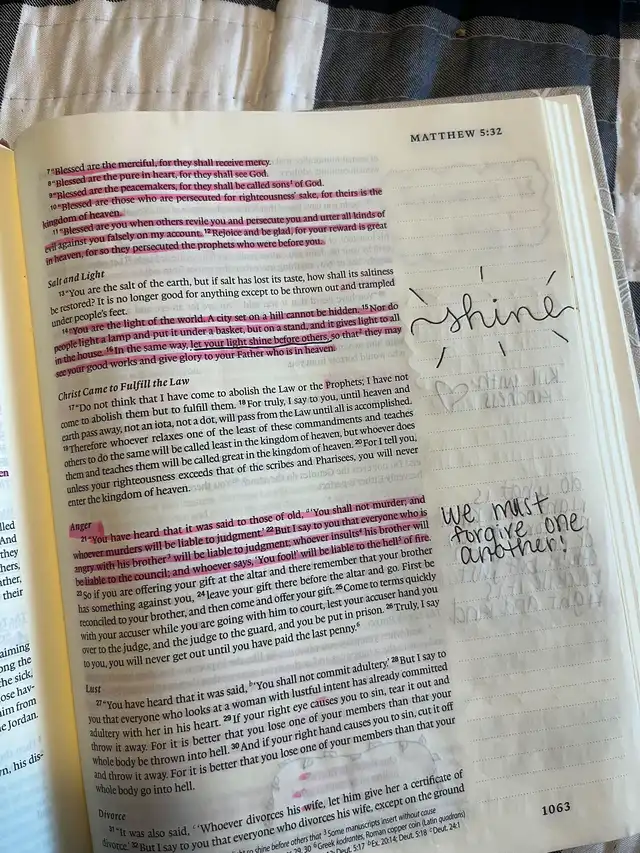 MATTHEW 5:32
7 "Blessed are the merciful, for they shall receive mercy.
8 "Blessed are the pure in heart, for they shall see God.
9 "Blessed are the peacemakers, for they shall be called sons of God.
10 "Blessed are those who are persecuted for righteousness' sake, for theirs is the
kingdom of heaven.
11 "Blessed are you when others revile you and persecute you and utter all kinds of
evil against you falsely on my account. 12 Rejoice and be glad, for your reward is great
in heaven, for so they persecuted the prophets who were before you.
Salt and Light
13 "You are the salt of the earth, but if salt has lost its taste, how shall its saltiness
be restored? It is no longer good for anything except to be thrown out and trampled
under people's feet.
14 "You are the light of the world. A city set on a hill cannot be hidden. 15 Nor do
people light a lamp and put it under a basket, but on a stand, and it gives light to all
in the house. 16 In the same way, let your light shine before others, so that they may
see your good works and give glory to your Father who is in heaven.
shine
Christ Came to Fulfill the Law
17 "Do not think that I have come to abolish the Law or the Prophets; I have not
come to abolish them but to fulfill them. 18 For truly, I say to you, until heaven and
earth pass away, not an iota, not a dot, will pass from the Law until all is accomplished.
19 Therefore whoever relaxes one of the least of these commandments and teaches
others to do the same will be called least in the kingdom of heaven, but whoever does
them and teaches them will be called great in the kingdom of heaven. 20 For I tell you,
unless your righteousness exceeds that of the scribes and Pharisees, you will never
enter the kingdom of heaven.
Anger
21 "You have heard that it was said to those of old, 'You shall not murder; and
whoever murders will be liable to judgment.' 22 But I say to you that everyone who is
angry with his brother will be liable to judgment; whoever insults his brother will
be liable to the council; and whoever says, 'You fool!' will be liable to the hell of fire.
23 So if you are offering your gift at the altar and there remember that your brother
has something against you, 24 leave your gift there before the altar and go. First be
reconciled to your brother, and then come and offer your gift. 25 Come to terms quickly
with your accuser while you are going with him to court, lest your accuser hand you
over to the judge, and the judge to the guard, and you be put in prison. 26 Truly, I say
to you, you will never get out until you have paid the last penny.
we must
forgive one
another!
Lust
27 "You have heard that it was said, 'You shall not commit adultery.' 28 But I say to
you that everyone who looks at a woman with lustful intent has already committed
adultery with her in his heart. 29 If your right eye causes you to sin, tear it out and
throw it away. For it is better that you lose one of your members than that your
whole body be thrown into hell. 30 And if your right hand causes you to sin, cut it off
and throw it away. For it is better that you lose one of your members than that your
whole body go into hell.
Divorce
31 "It was also said, 'Whoever divorces his wife, let him give her a certificate of
divorce.' 32 But I say to you that everyone who divorces his wife, except on the ground
to shine before others that 3 Some manuscripts insert without cause
29, 30 6 Greek kodrantes, Roman copper coin (Latin quadrans)
Deut. 5:17 Ex. 20:14; Deut. 5:18 Deut. 24:1
1063